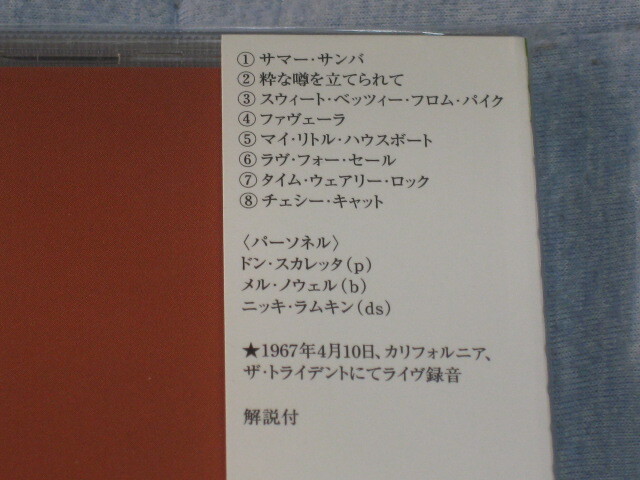 ① サマー・サンバ
② 粋な噂を立てられて
③ スウィート・ベッツィー・フロム・パイク
④ ファヴェーラ
⑤ マイ・リトル・ハウスボート
⑥ ラヴ・フォー・セール
⑦ タイム・ウェアリー・ロック
⑧ チェシー・キャット
〈パーソネル〉
ドン・スカレッタ(p)
メル・ノウェル(b)
ニッキ・ラムキン(ds)
★1967年4月10日、カリフォルニア、
ザ・トライデントにてライヴ録音
解説付